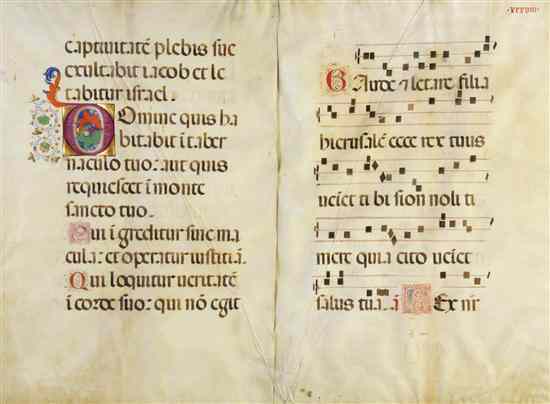 captivitatē plebis sue
exultabit iacob et le
tabitur israel.
Domine quis ha
bitabit ī taber
naculo tuo: aut quis
requiescet ī monte
sancto tuo.
Qui īgreditur sine ma
cula: et operatur iustitiā.
Qui loquitur ueritatē
ī corde suo: qui nō egit
Gaude & letare filia
hierusalē ecce rex tuus
uēiet ti bi sion noli ti
mere quia cito uēiet
salus tua. ā Rex nr̄